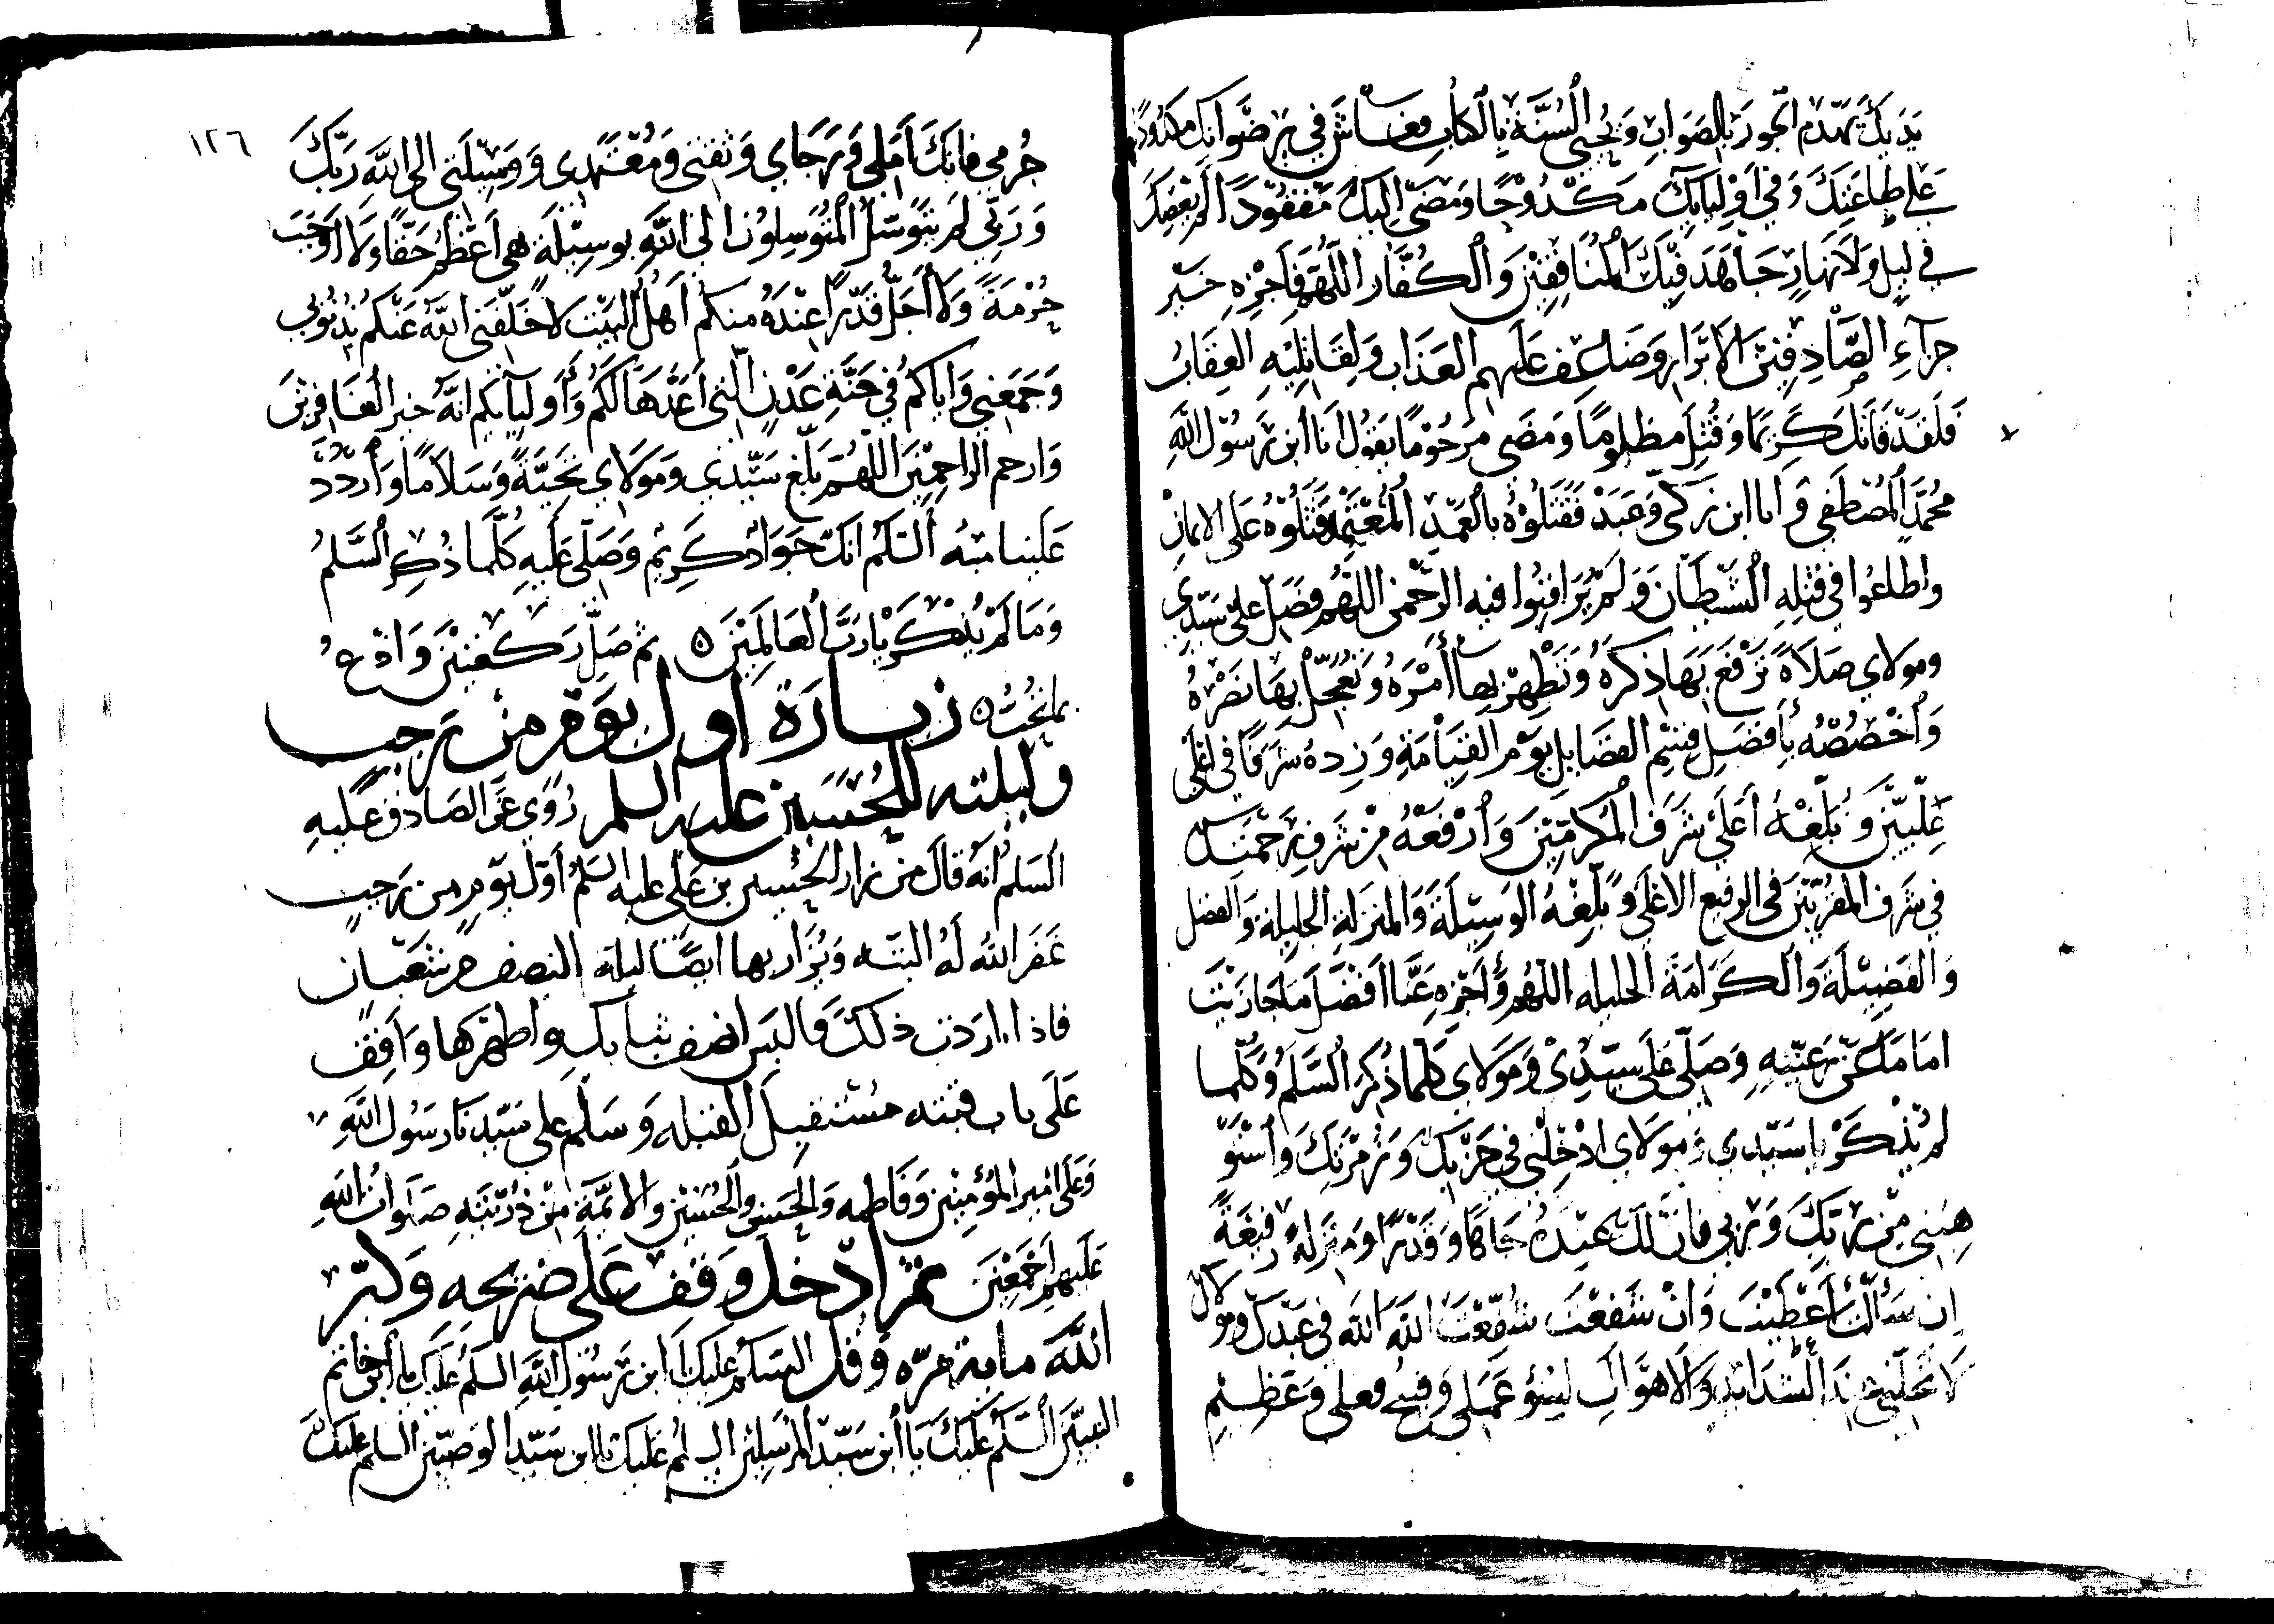 يَدَيْكَ يَهْدِمُ الجَورَ بِالصَوابِ وَيُحيي السُنَّةَ بِالكتابِ فعاش في رِضْوانِكَ مكدُودًا
عَلى طاعَتِكَ وَفي أوْلِيائِكَ مَكدُوْحًا وَمَضى اِليْكَ مَفقُوْدًا لم يَعْصِكَ
في ليلٍ وَلا نَهارٍ جاهَدَ فيْكَ المُنافِقيْنَ وَالكُفّار اللّهم فَاجْزِهِ خَيْرَ
جزآءِ الصّادِقِيْنَ الابْرار وَضاعِف عَليهم العَذاب وَلِقاتِليْهِ العِقابُ
فَلَقَدْ قاتَلَ كَرِيمًا وَقُتِلَ مظلومًا وَمَضى مَرحُوْمًا يَقُولُ انا ابن رَسُوْل الله
محُمّدٍ المُصْطَفى وَابا ابن زَكى وَعَبَدْ فقتلُوْهُ بالعَمْدِ المُعْتَمَدِ قَتَلُوْهُ عَلى الايمان
واطاعُوا في قتلِهِ الشيْطانَ وَلم يُراقِبُوا فيه الرّحْمن اللّهم فصَل على سَيّدي
ومولاي صَلاةً تَرْفَعُ بِهَا ذِكرَهُ وَتُظْهِرُ بِها أمْرَهُ وَتُعَجّلُ بِهَا نَصْرَهُ
وَاخْصُصْهُ بِأفضَلِ قِسَمِ الفضَايِل يَوْم القِيَامَةِ وَزِدهُ شَرَفًا في اعْلى
عِلّيّيْنَ وَبَلِّغْهُ أعْلى شَرَفَ المُكرَمّيْنَ وَارْفَعْهُ مِنْ شَرَفِ رَحْمَتِكَ
في شَرَف المقَرَّبيْنَ في الرفيع الاعْلى وَبَلِّغْهُ الوَسِيْلَةَ وَالمنزلةَ الجليلةَ وَالفضل
وَالفَضِيْلَةَ وَالكَرَامَةَ الجليله اللّهُم وَاجْزِهِ عَنّا افْضَلَ مَا جازَيْتَ
امَامًا عَنْ رَعيّتِهِ وَصَلِّ عَلى سيّدِيْ وَمَوْلاي كلّما ذُكِرَ السَّلَمُ وَكُلّما
لم يُذْكَرْ يا سَيّدي وَمولاي ادْخِلْني في حزْبِكَ وَزُمْرَتِكَ وَاسْتَوْ
هِبْني مِنْ رَبّكَ وَرَبي فانَّ لَكَ عِنْدَهُ جَاهًا وَقَدْرًا وَمنزلةً رَفيْعَةً
اِن سَألتَ أعْطِيْتَ وَانْ شَفعْتَ شُفِّعْتَ اللهَ اللهَ في عَبْدكَ ومولاكَ
لا تُخَلِّني عِنْدَ الشّدَايدِ وَالاهْوَالِ لِسُوْءِ عَمَلي وَقَبيْحِ فعلي وَعَظِيْمِ
١٢٦
جُرمي فانّكَ أمَلي وَرَجَاي وَثقتي وَمُعْتَمَدي وَوَسِيْلَتي الى الله رَبّكَ
وَرَبّي لم يَتَوَسَّلْ المُتوَسِلُونَ الى اللهِ بوسِيْلَةٍ هي اعْظَمُ حَقًّا وَلا أوْجَبَ
حُرْمَةً وَلا اجَلَّ قَدْرًا عِنْدَهُ منكم أهْلَ البَيْت لا خَلّفَني اللهُ عَنْكم بِذُنُوبي
وَجَمَعَني وَاياكم في جَنَّةِ عَدْنٍ الّتي أعَدَّهَا لَكُم وَلِأوليآيِكم انّهُ خير الغافِرِيْنَ
وَارحم الراحِمْينَ اللّهُمّ بَلّغ سَيّدي وَمَولاي تَحِيَّةً وَسَلامًا وَارْدُدْ
عَلَينا منه السَلم انكَ جَوَادٌ كَريْم وَصَلّى عَليهِ كُلّما ذُكِرَ السَّلَمُ
وَمَا لَمْ يُذْكَرْ يا رَبَّ العَالَمِيْنَ ٥ ثم صَلِّ رَكعَتيْنِ وَادْعُ
بما تُحِبُ ٥ زيارَة أول يَوْم مِن رَجب
وليلته للحُسَين عليه السلم رُوَي عَن الصَادق عَليهِ
السَلمُ انّهُ قالَ من زار الحُسين بن عَلي عليه السَلمُ أوّل يَوْمٍ من رَجبٍ
غَفَر اللهُ لهُ البتّه وَيُزَار بها ايضًا ليلة النصف من شعبان
فاذا ارَدت ذلكَ فالبَس انظف ثيابك واطهَرها وَاقِف
عَلَى باب قبّته مُسْتَقبِلَ القبله وَسَلِّم عَلى سَيّدنَا رَسُول اللهِ
وَعَلى امير المُؤْمِنيْنَ وَفاطِمه وَالحَسن وَالحُسَيْن والائمّةِ مِنْ ذُرّيّتِهِ صَلَواتُ اللهِ
عَليهِمْ اجْمَعْينَ ثمّ ادْخل وقف عَلى ضريحِهِ وَكبّر
اللهَ ماية مرّه وَقُل السَلمُ عَليكَ يا ابن رَسُوْل اللهِ السَلمُ عَليكَ يا ابن خاتم
النبيّيْنَ السَلمُ عَليْكَ يا ابن سَيّد المرسَلِيْنَ السَلمُ عَلَيكَ يا ابن سَيّد الوَصيّيْنَ السلم عليكَ